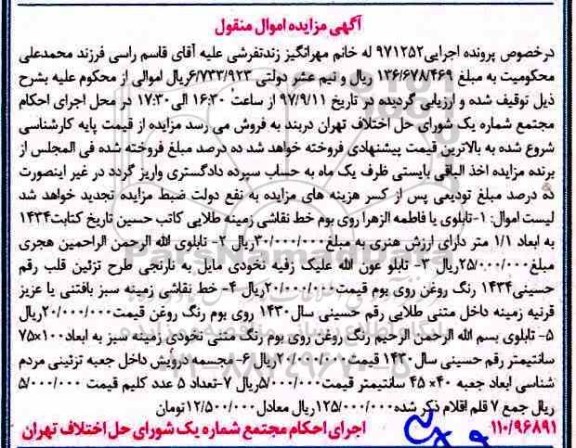 آگهی مزایده اموال منقول
درخصوص پرونده اجرایی۹۷۱۲۵۲ له خانم مهرانگیز زندتفرشی علیه آقای قاسم راسی فرزند محمدعلی
محکومیت به مبلغ ۱۳۶/۶۷۸/۴۶۹ ریال و نیم عشر دولتی ۶/۷۳۳/۹۲۳ریال اموالی از محکوم علیه بشرح
ذیل توقیف شده و ارزیابی گردیده در تاریخ ۹۷/۹/۱۱ از ساعت ۱۶:۳۰ الی۱۷:۳۰ در محل اجرای احکام
مجتمع شماره یک شورای حل اختلاف تهران دربند به فروش می رسد مزایده از قیمت پایه کارشناسی
شروع شده به بالاترین قیمت پیشنهادی فروخته خواهد شد ده درصد مبلغ فروخته شده فی المجلس از
برنده مزایده اخذ الباقی بایستی ظرف یک ماه به حساب سپرده دادگستری واریز گردد در غیر اینصورت
ده درصد مبلغ تودیعی پس از کسر هزینه های مزایده به نفع دولت ضبط مزایده تجدید خواهد شد
لیست اموال: ۱-تابلوی یا فاطمه الزهرا روی بوم خط نقاشی زمینه طلایی کاتب حسین تاریخ کتابت۱۴۳۴
به ابعاد ۱/۱ متر دارای ارزش هنری به مبلغ۳۰/۰۰۰/۰۰۰ریال ۲- تابلوی الله الرحمن الراحمین هجری
مبلغ۲۵/۰۰۰/۰۰۰ریال ۳- تابلو عون الله علیک زفیه نخودی مایل به نارنجی طرح تزئین قلب رقم
حسینی۱۴۳۴ رنگ روغن روی بوم قیمت۲۰/۰۰۰/۰۰۰ریال ۴- خط نقاشی زمینه سبز بافتنی یا عزیز
قرنیه زمینه داخل متنی طلایی رقم حسینی سال۱۴۳۰ روی بوم رنگ روغن قیمت۲۰/۰۰۰/۰۰۰ریال
۵- تابلوی بسم الله الرحمن الرحیم رنگ روغن روی بوم رنگ متنی نخودی زمینه سبز به ابعاد۱۰۰×۷۵
سانتیمتر رقم حسینی سال۱۴۳۰ قیمت۲۰/۰۰۰/۰۰۰ریال ۶-مجسمه درویش داخل جعبه تزئینی مردم
شناسی ابعاد جعبه ۴۰× ۴۵ سانتیمتر قیمت۵/۰۰۰/۰۰۰ریال ۷-تعداد ۵ عدد کلیم قیمت ۵/۰۰۰/۰۰۰
ریال جمع ۷ قلم اقلام ذکر شده۱۲۵/۰۰۰/۰۰۰ریال معادل۱۲/۵۰۰/۰۰۰تومان
۱۱۰/۹۶۸۹۱ اجرای احکام مجتمع شماره یک شورای حل اختلاف تهران